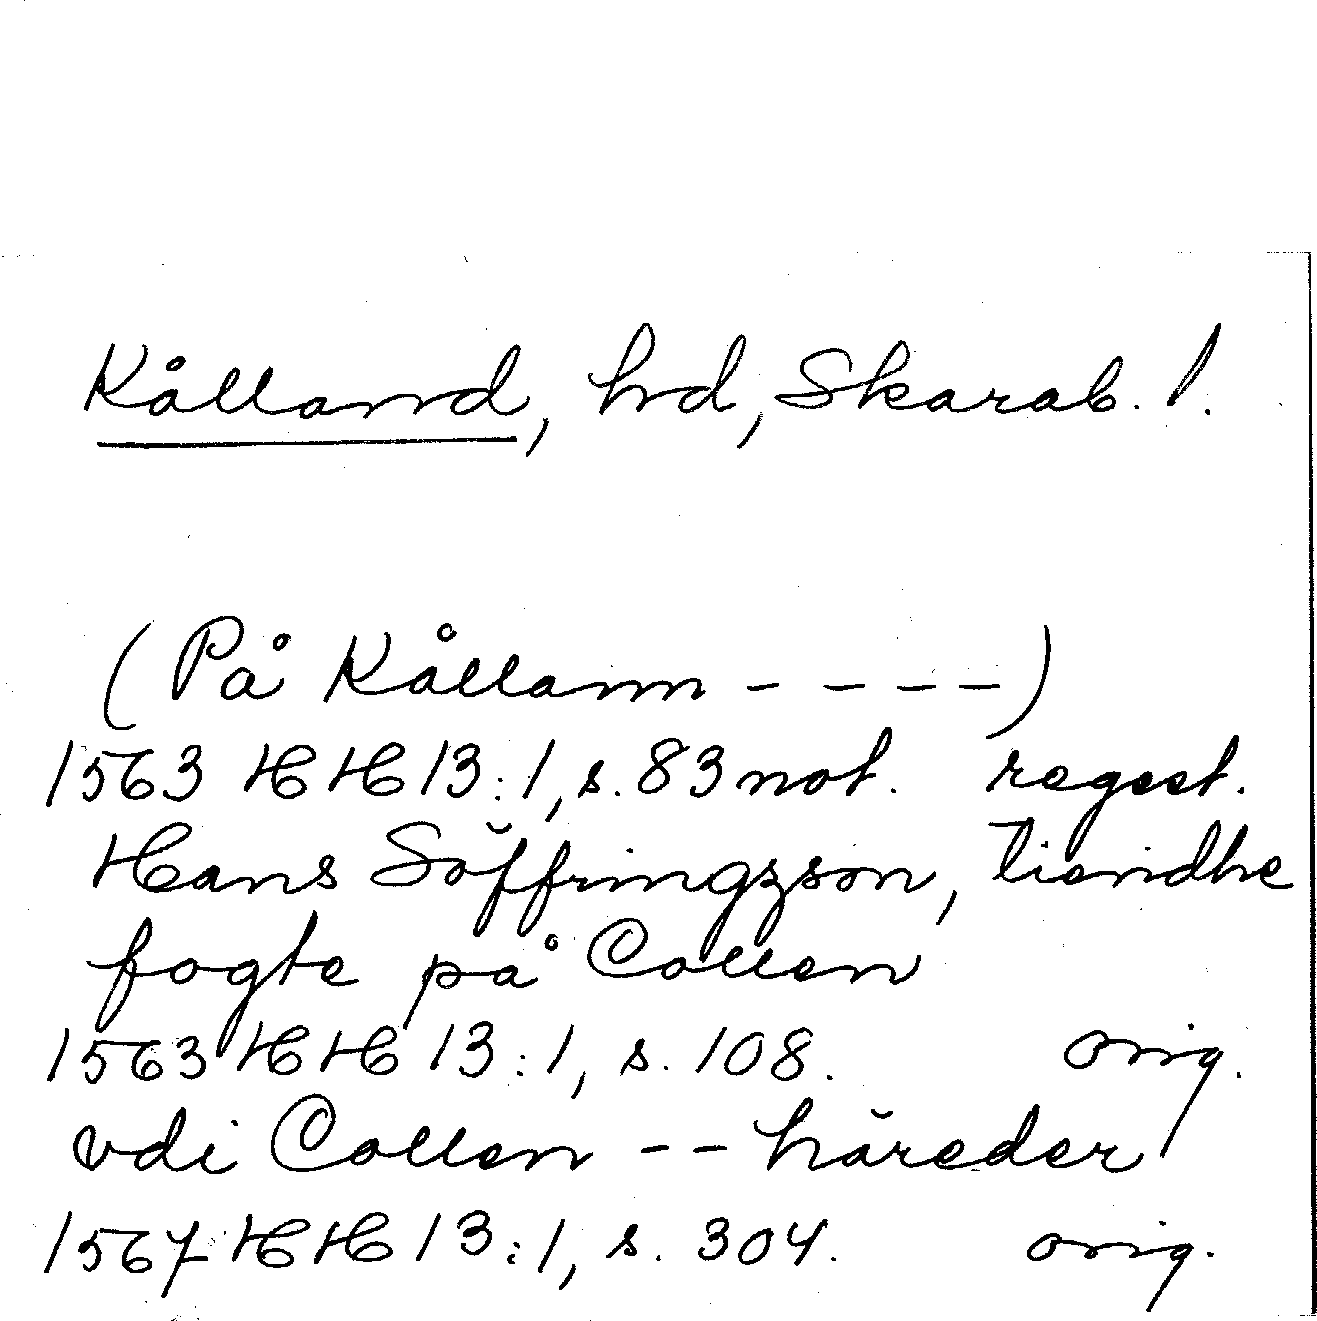 Kålland, hd, Skarab. l.
(På Kållann - - - -)
1563 HH 13:1, s. 83 not. regest.
Hans Söffringzson, tiendhe
fogte på Collen
1563 HH 13:1, s. 108. orig.
vdi Collen - - häreder
1567 HH 13:1, s. 304. orig.